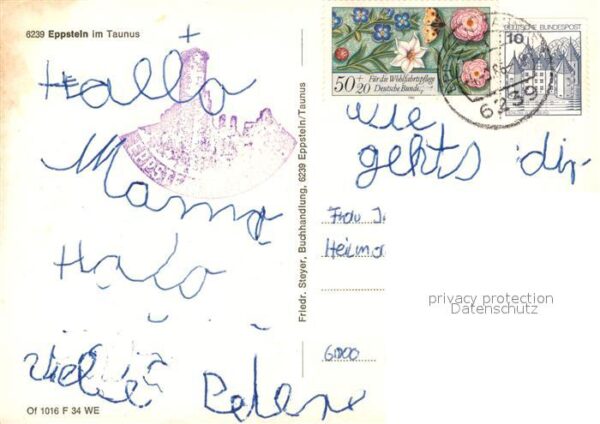 6239 Eppstein im Taunus
Hallo
Mama
Halo
viele
wie
gehts dir
50+20 Für die Wohlfahrtspflege
Deutsche Bundes
DEUTSCHE BUNDESPOST
10
6239
EPPSTE
Friedr. Steyer, Buchhandlung, 6239 Eppstein/Taunus
Frau
privacy protection
Datenschutz
Of 1016 F 34 WE